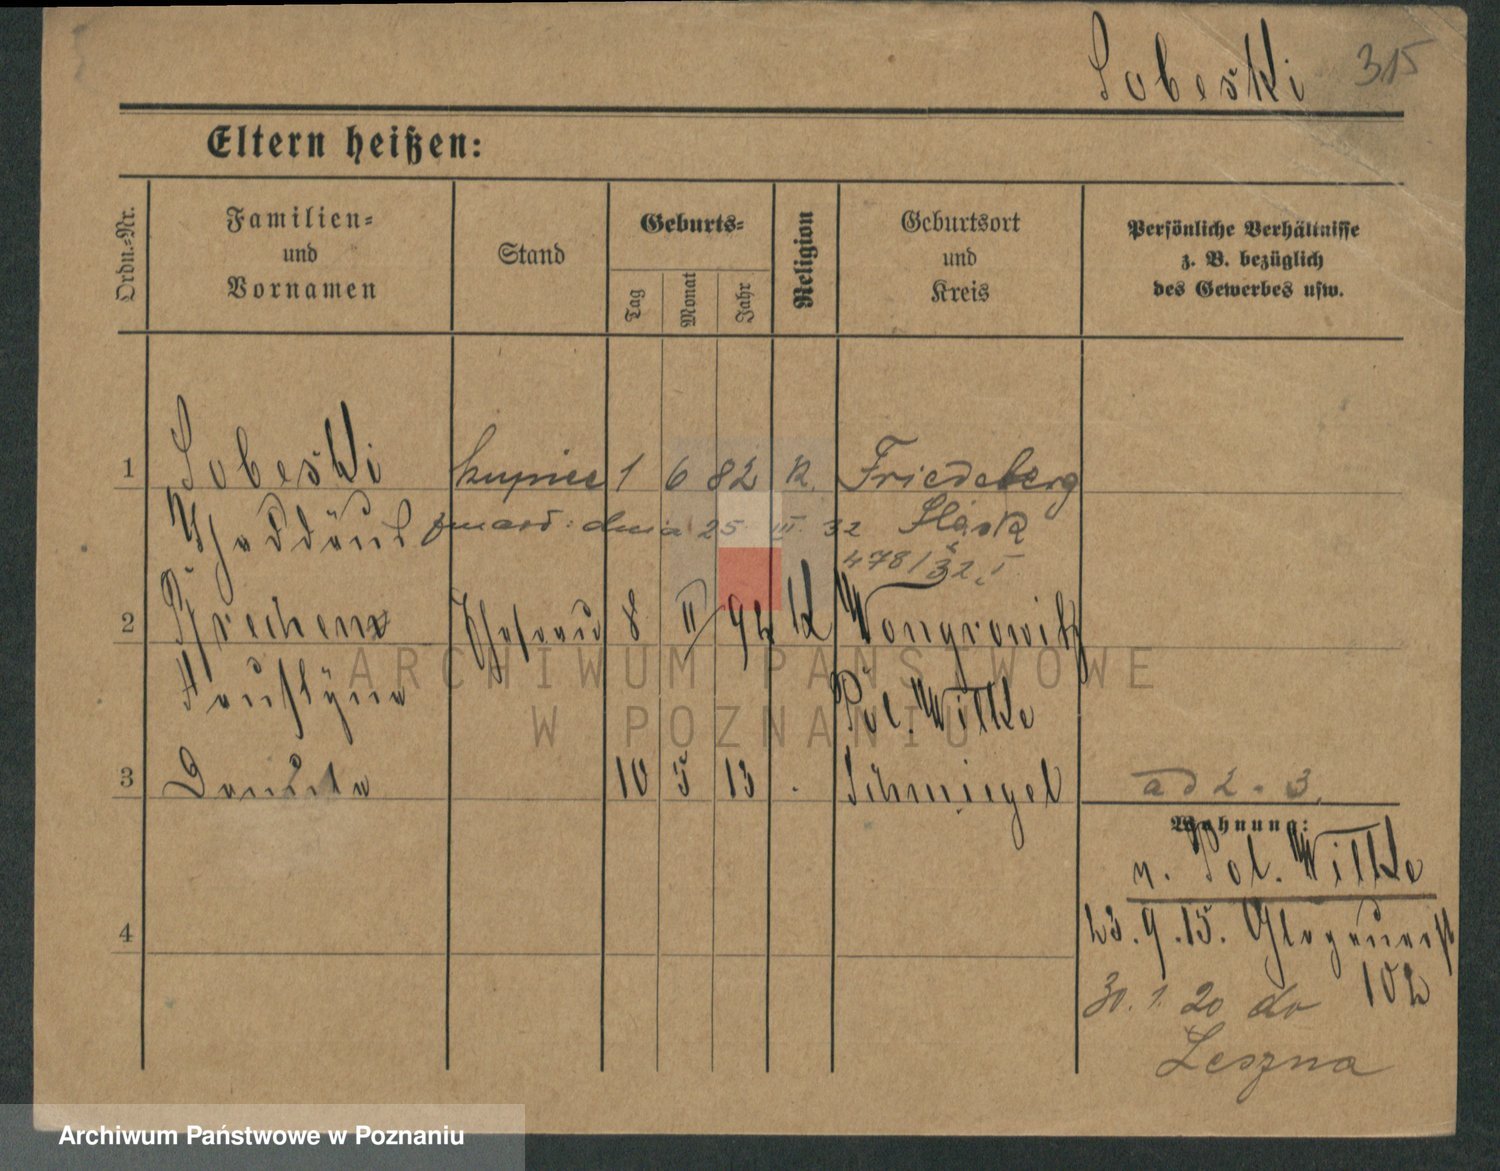 Sobeski 315
Eltern heißen:
Ordn.=Nr.
Familien=
und
Vornamen
Stand
Geburts=
Tag
Monat
Jahr
Religion
Geburtsort
und
Kreis
Persönliche Verhältnisse
z. B. bezüglich
des Gewerbes usw.
1 Sobeski kupiec 1 6 82 K. Friedeberg
Thaddäus zmarł: dnia 25 III. 32 Śląsk
478/32
2 Ehefrau 8 II 92 K Wongrowitz
Faustyna Pol. Wilke
3 Danuta 10 5 13 . Schmiegel
ad 2 - 3.
Wohnung:
n. Pol. Wilke
4
23.9.15. Glogauerst
102
30.1.20 do
Leszna
ARCHIWUM PAŃSTWOWE
W POZNANIU
Archiwum Państwowe w Poznaniu